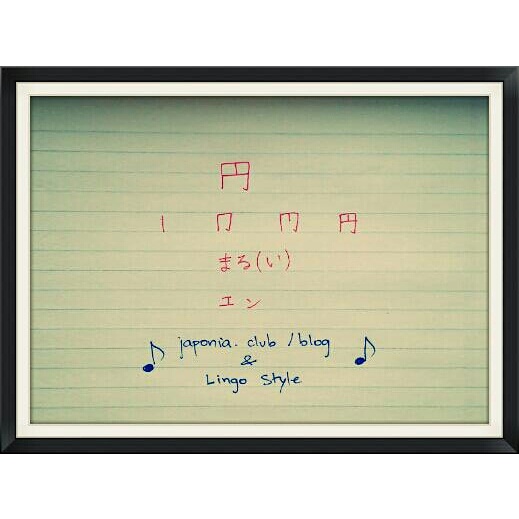 円
丨 冂 冃 円
まる(い)
エン
japonia.club/blog
&
Lingo Style